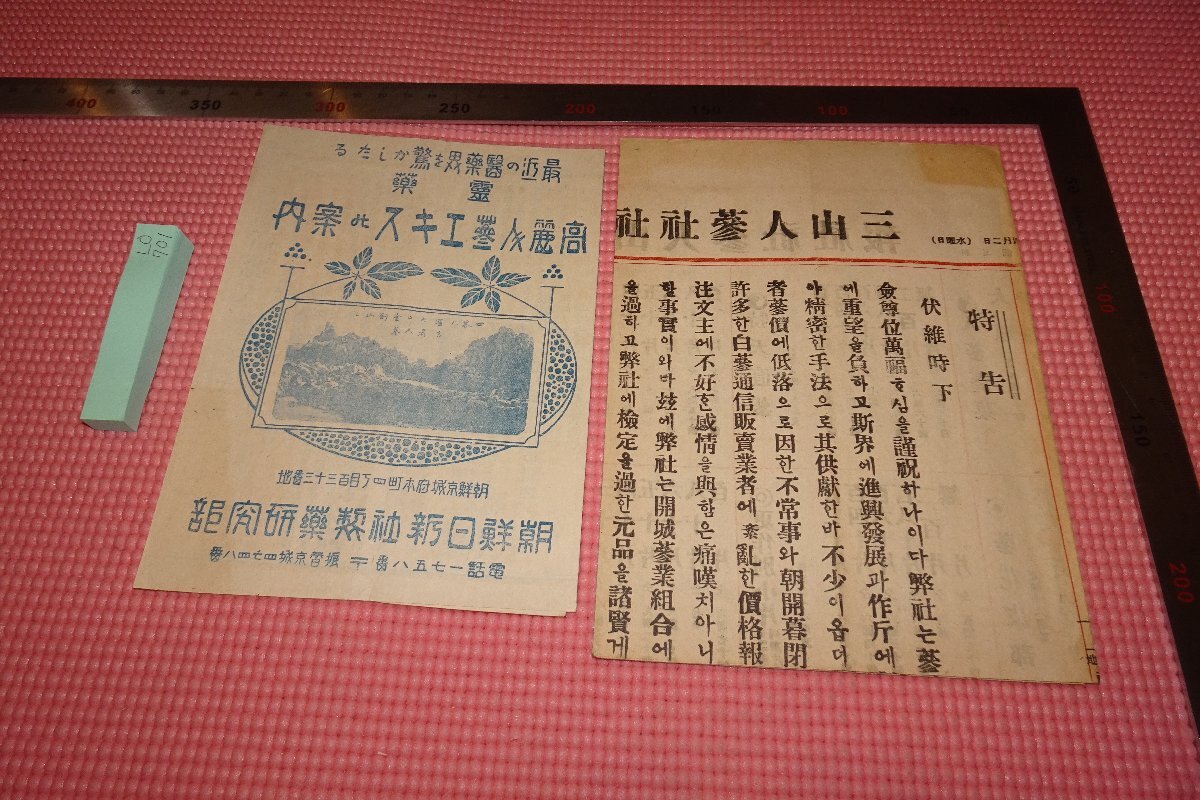 最近の醫藥界を驚かしたる
靈藥
高麗人蔘エキスの案内
朝鮮京城府本町四丁目百三十三番地
朝鮮日新社製藥研究部
電話一七五八番 振替京城四七四八番
月二日 (水曜日) 三山人蔘社社
特告
伏維時下
僉尊位萬福ᄒ심을謹祝하나이다弊社는蔘
에重望을負하고斯界에進興發展과作斤에
야精密한手法으로其供獻한바不少이옵더
者蔘價에低落으로因한不常事와朝開暮閉
許多한白蔘通信販賣業者에紊亂한價格報
注文主에不好ᄒᆞᆫ感情을與함은痛嘆치아니
할事實이와마玆에弊社는開城蔘業組合에
을過하고弊社에檢定을過한元品을諸賢게
901
400 350 300 250 200 150 100
50
100
150
200